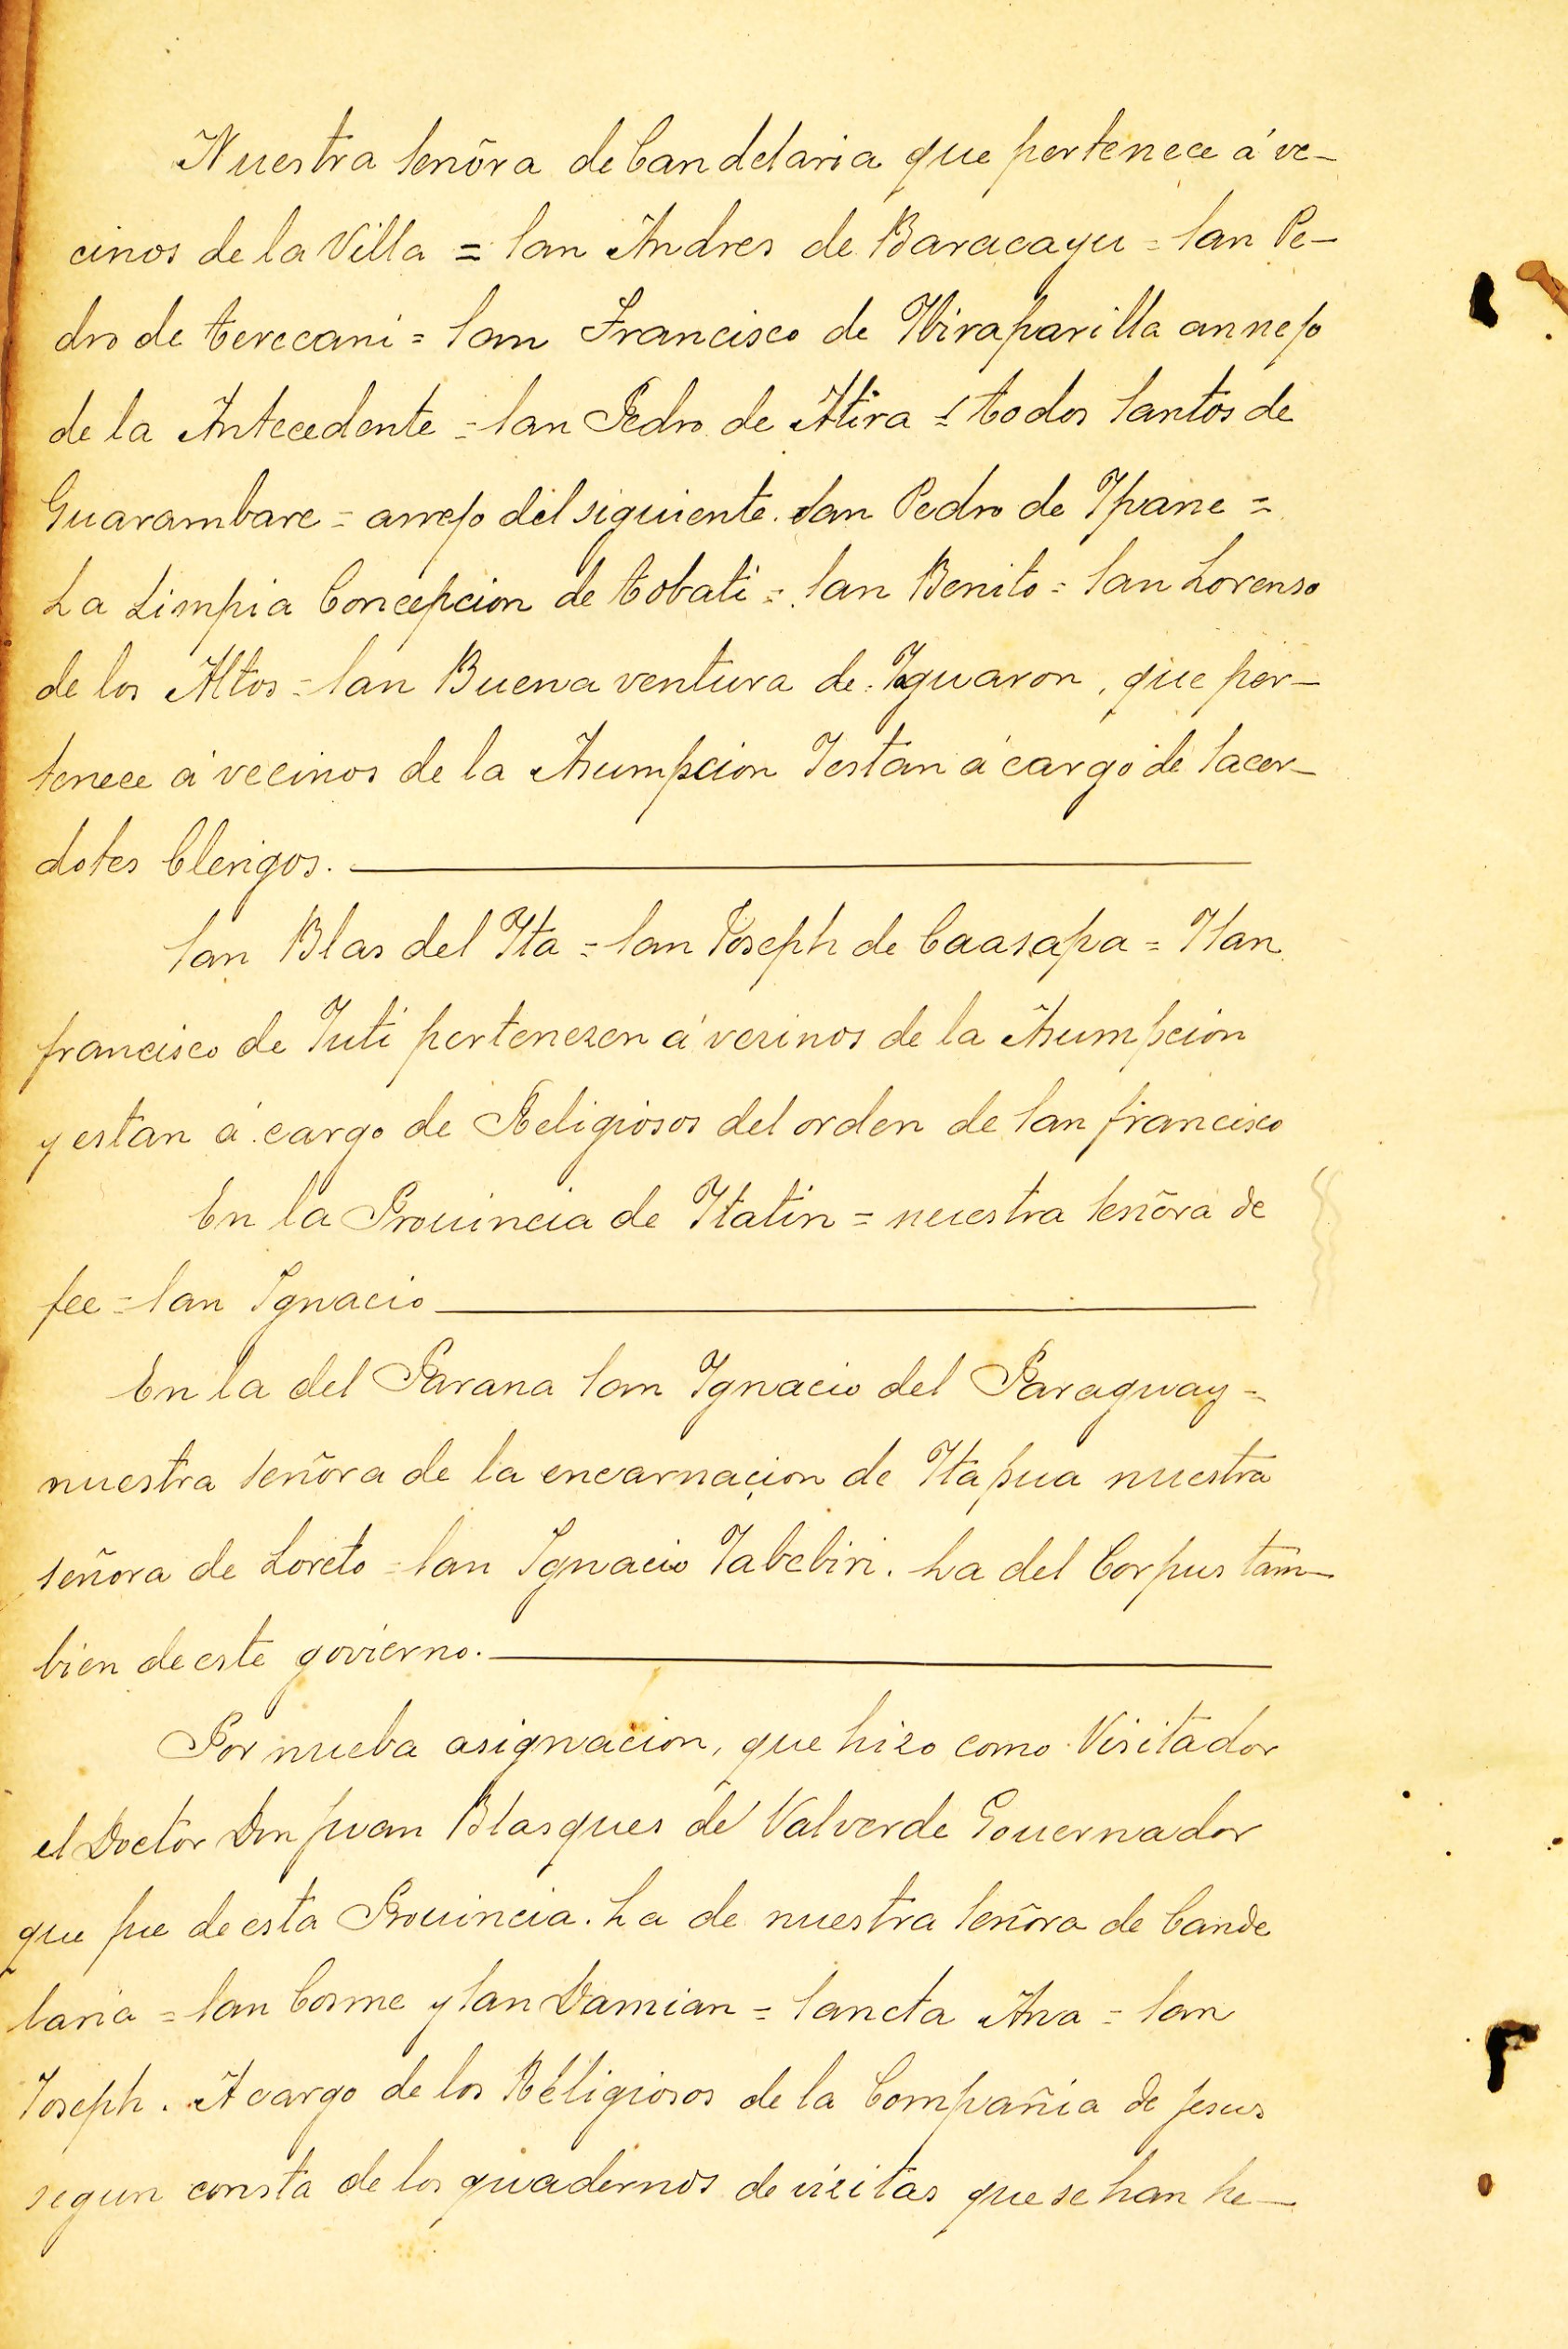 Nuestra Señora de Candelaria que pertenece á ve-
cinos de la Villa = San Andres de Baracayu = San Pe-
dro de terecani = San Francisco de Ybiraparilla annejo
de la Antecedente = San Pedro de Atira = todos Santos de
Guarambare = anejo del siguiente. San Pedro de Ypane =
La Limpia Concepcion de tobati = San Benito = San Lorenso
de los Altos = San Buena ventura de Yguaron, que per-
tenece á vecinos de la Asumpcion Y estan á cargo de Sacer-
dotes Clerigos.
San Blas del Yta = San Joseph de Caasapa = Y San
francisco de Yuti pertenezen á vezinos de la Asumpcion
y estan á cargo de Religiosos del orden de San francisco
En la Prouincia de Ytatin = nuestra Señora de
fee = San Ygnacio
En la del Parana San Ygnacio del Paraguay =
nuestra Señora de la encarnaçion de Ytapua nuestra
Señora de Loreto = San Ygnacio Yabebiri. La del Corpus tam-
bien de este govierno.
Por nueba asignacion, que hizo como Visitador
el Doctor Don Juan Blasques de Valverde Gouernador
que fue de esta Prouincia. La de nuestra Señora de Cande
laria = San Cosme y San Damian = Sancta Ana = San
Joseph. A cargo de los Religiosos de la Compañia de Jesus
segun consta de los quadernos de vizitas que se han he-